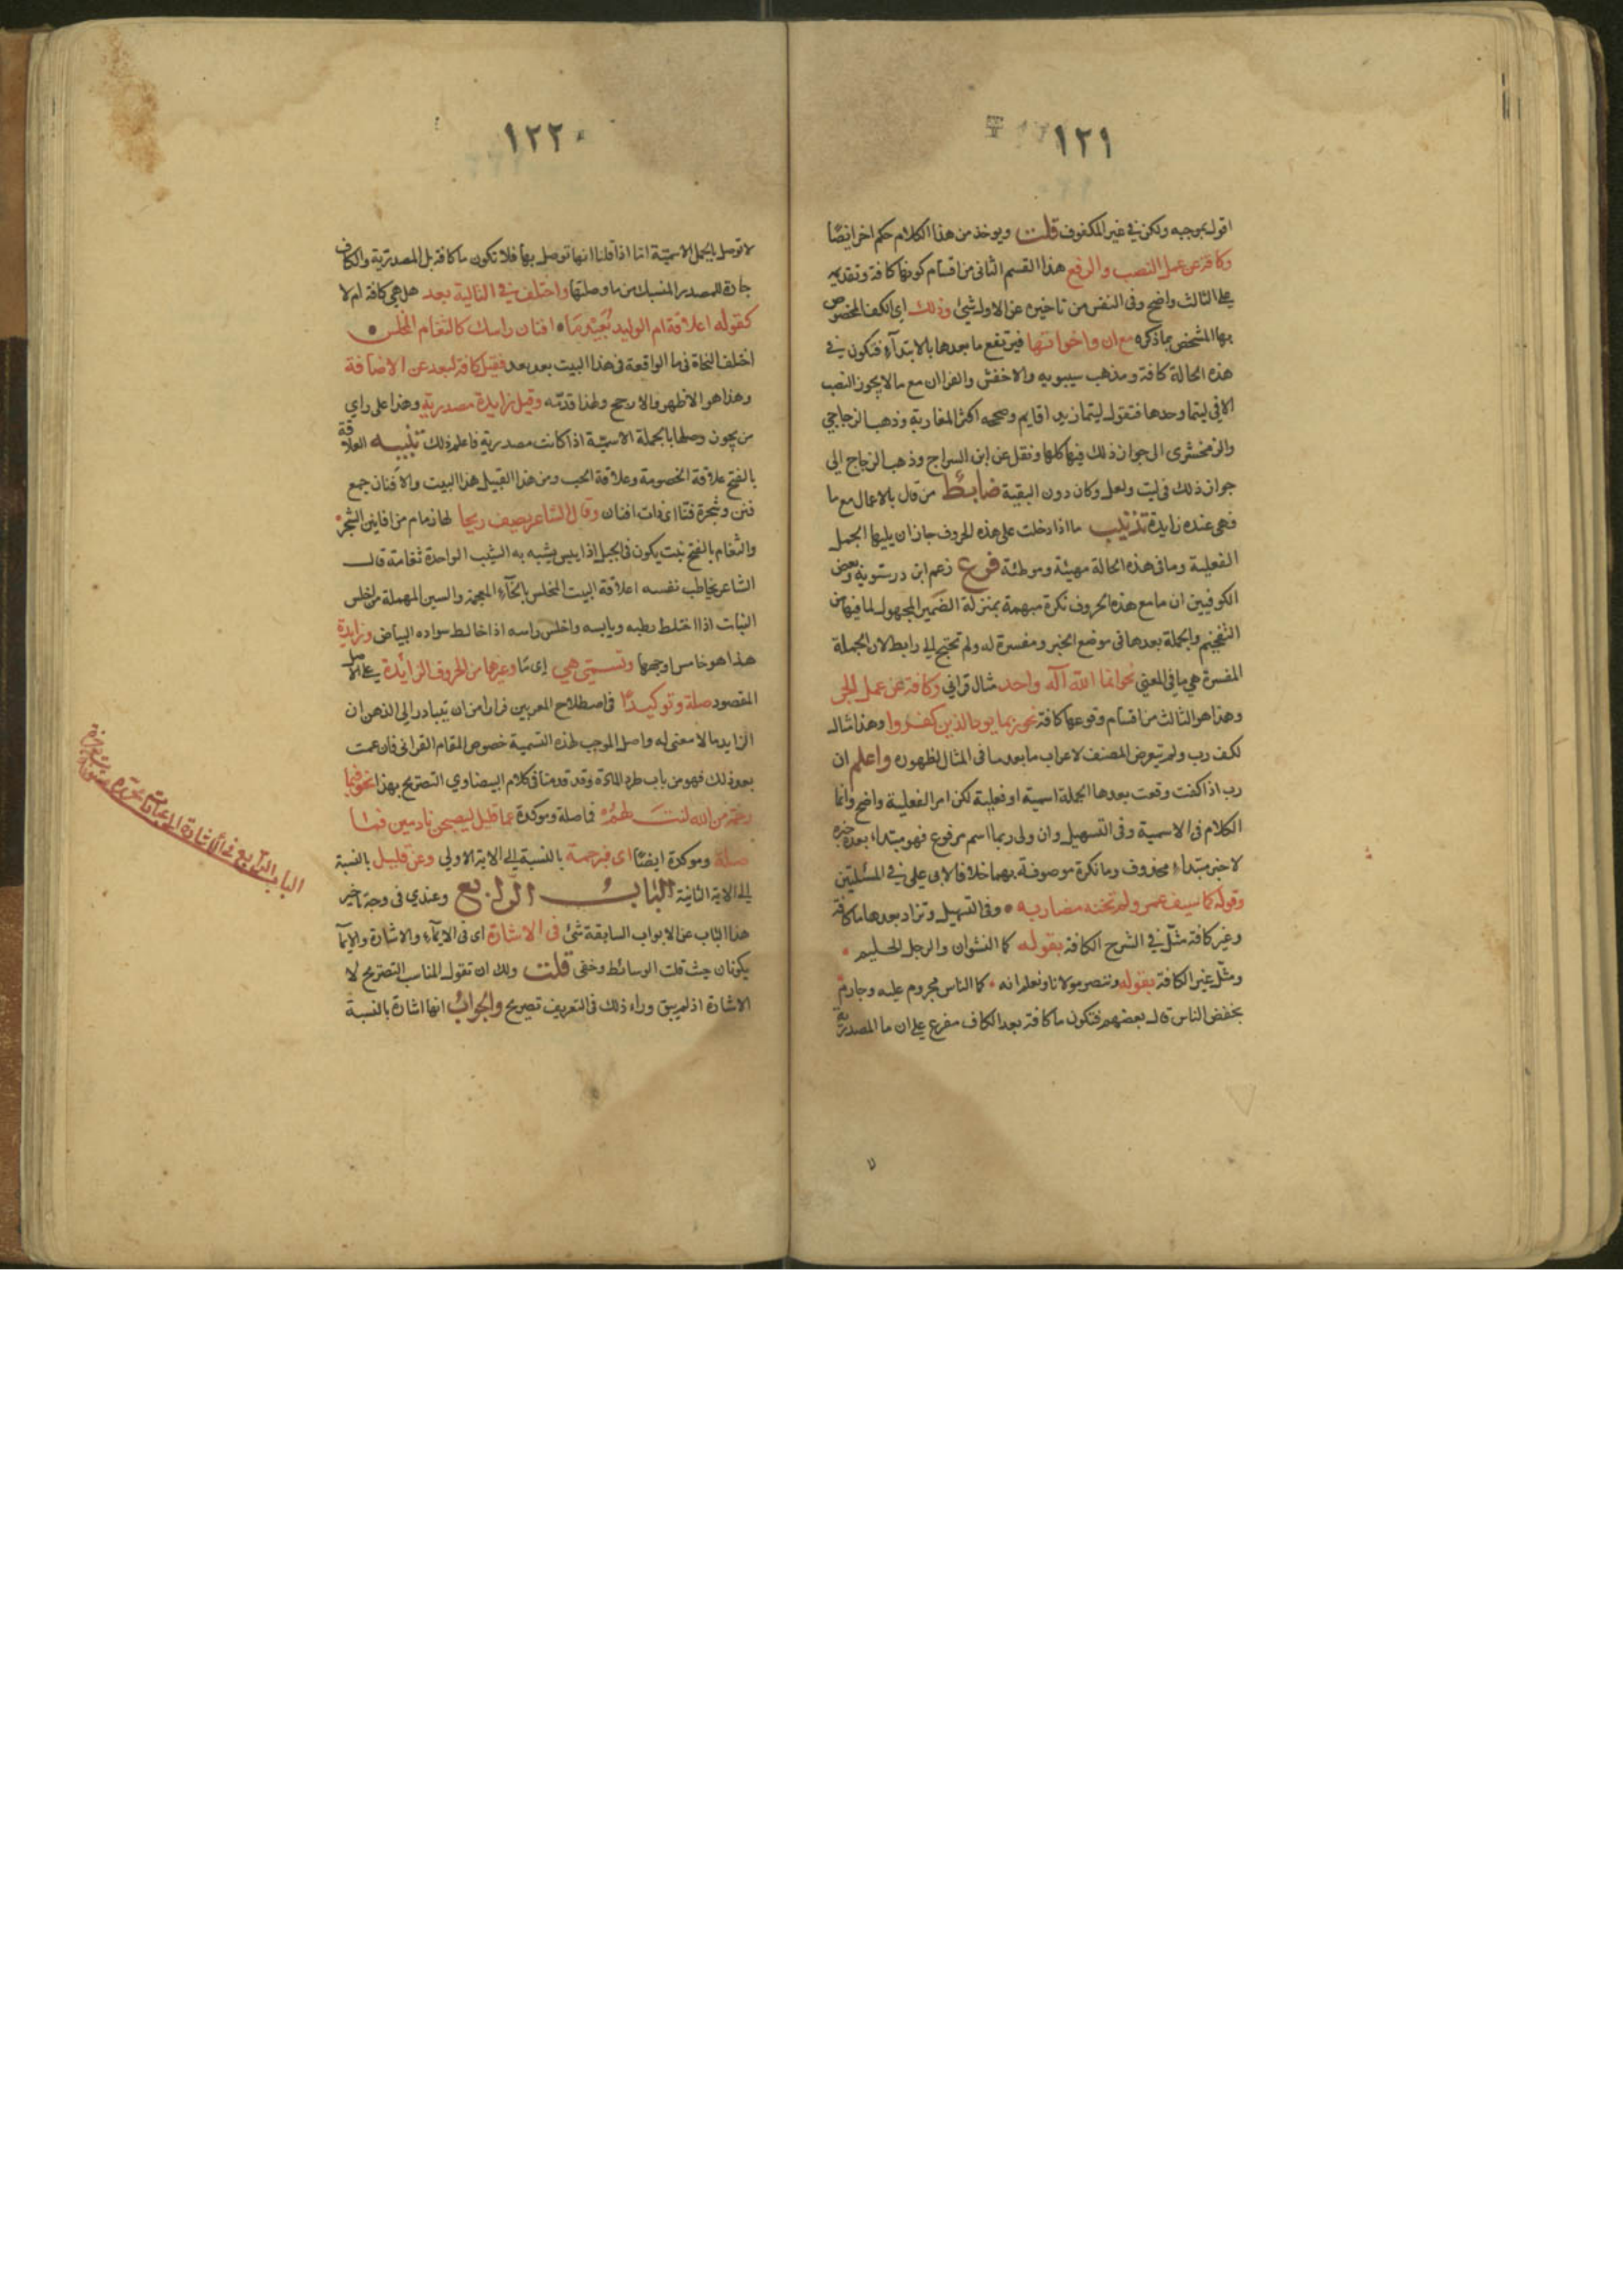 ١٢١
اقول بموجبه ولكن في غير المكفوف قلت ويوخذ من هذا الكلام حكم اخر ايضا
وكافة عن عمل النصب والرفع هذا القسم الثاني من اقسام كونها كافة وتقديمه
على الثالث واضح وفي النفس من تاخيره عن الاول شئ وذلك اي الكف المخصوص
بها المشخص بما ذكره مع ان واخواتها فيرتفع ما بعدها بالابتدآء فتكون في
هذه الحالة كافة ومذهب سيبويه والاخفش والفرا ان مع ما لا يجوز النصب
الا في ليتما وحدها فتقول ليتما زيدا قايم وصححه اكثر المغاربة وذهب الزجاجي
والزمخشرى الى جواز ذلك فيها كلها ونقل عن ابن السراج وذهب الزجاج الى
جواز ذلك في ليت ولعل وكان دون البقية ضابط من قال بالاعمال مع ما
فهي عنده زايدة تذنيب ما اذا دخلت على هذه الحروف جاز ان يليها الجمل
الفعلية وما في هذه الحالة مهيئة وموطئة فرع زعم ابن درستويه وبعض
الكوفيين ان ما مع هذه الحروف نكرة مبهمة بمنزلة الضمير المجهول لما فيها من
التفخيم والجملة بعدها في موضع الخبر ومفسرة له ولم تحتج الى رابط لان الجملة
المفسرة هي ما في المعنى نحو انما الله اله واحد مثال قراني وكافة عن عمل الجر
وهذا هو الثالث من اقسام وقوعها كافة نحو ربما يود الذين كفروا وهذا مثال
لكف رب ولم يتعرض المصنف لاعراب ما بعد ما في المثال لظهوره واعلم ان
رب اذا كفت وقعت بعدها الجملة اسمية او فعلية لكن امر الفعلية واضح وانما
الكلام في الاسمية وفي التسهيل وان ولى ربما اسم مرفوع فهو مبتداء بعده خبره
لا خبر مبتداء محذوف وما نكرة موصوفة بهما خلافا لابى على في المسئلتين
وقوله كما سيف عمرو لم تخنه مضاربه • وفي التسهيل وتزاد بعدها ما كافة
وغير كافة مثّل في الشرح الكافة بقوله كما النشوان والرجل الحليم •
ومثّل غير الكافة بقوله وننصر مولانا ونعلم انه • كما الناس مجروم عليه وجارم
بخفض الناس قال بعضهم فتكون ما كافة بعد الكاف مفرع على ان ما المصدرية
١٢٢
لا توصل بالجمل الاسمية اما اذا قلنا انها توصل بها فلا تكون ما كافة بل المصدرية والكاف
جارة للمصدر المنسبك من ما وصلتها واختلف في التالية بعد هل هي كافة ام لا
كقوله اعلاقة ام الوليد بُعَيْدَ مَا • افنان راسك كالثغام المخلس •
اختلف النحاة في ما الواقعة في هذا البيت بعد بعد فقيل كافة لبعد عن الاضافة
وهذا هو الاظهر والارجح ولهذا قدمه وقيل زايدة مصدرية وهذا على راي
من يجوز وصلها بالجملة الاسمية اذا كانت مصدرية فاعلم ذلك تنبيه العلاقة
بالفتح علاقة الخصومة وعلاقة الحب ومن هذا القبيل هذا البيت والافنان جمع
فنن وشجرة فنّا اى ذات افنان وقال الشاعر يصف ريحا لها زمام من افانين الشجر •
والثغام بالفتح نبت يكون في الجبل اذا يبس يشبه به الشيب الواحدة ثغامة قال
الشاعر يخاطب نفسه اعلاقة البيت المخلس بالخآء المعجمة والسين المهملة من اخلس
النبات اذا اختلط رطبه ويابسه واخلس راسه اذا خالط سواده البياض وزايدة
هذا هو خامس اوجهها وتسمى هي اى مَا وغيرها من الحروف الزائدة على الاصل
المقصود صلة وتوكيدًا في اصطلاح المعربين فرارا من ان يتبادر الى الذهن ان
الزايد ما لا معنى له واصل الموجب لهذه التسمية خصوص المقام القرانى فان عمت
بعد ذلك فهو من باب طرد المادة وقد قدمنا في كلام البيضاوي التصريح بهذا نحو فبما
رحمة من الله لنت لهم فما صلة وموكدة عما قليل ليصبحن نادمين فما
صلة وموكدة ايضًا اى فبرحمة بالنسبة الى الاية الاولى وعن قليل بالنسبة
الى الاية الثانية الباب الرابع وعندي في وجه تاخير
هذا الباب عن الابواب السابقة شئ في الاشارة اى في الايمآء والاشارة والايمآ
يكونان حيث قلت الوسائط وخفى قلت ولك ان تقول المناسب التصريح لا
الاشارة اذ لم يبق وراء ذلك في التعريف تصريح والجواب انها اشارة بالنسبة
الباب الرابع في الاشارة الى عبارات محررة